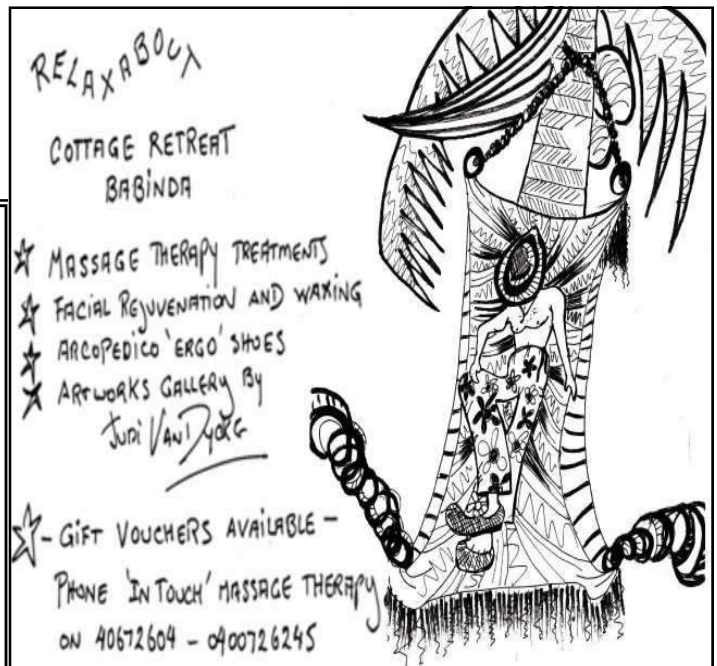 RELAXABOUT
COTTAGE RETREAT
BABINDA
MASSAGE THERAPY TREATMENTS
FACIAL REJUVENATION AND WAXING
ARCOPEDICO 'ERGO' SHOES
ARTWORKS GALLERY BY
JUDI
- GIFT VOUCHERS AVAILABLE -
PHONE 'IN TOUCH' MASSAGE THERAPY
ON 40672604 - 0400726245